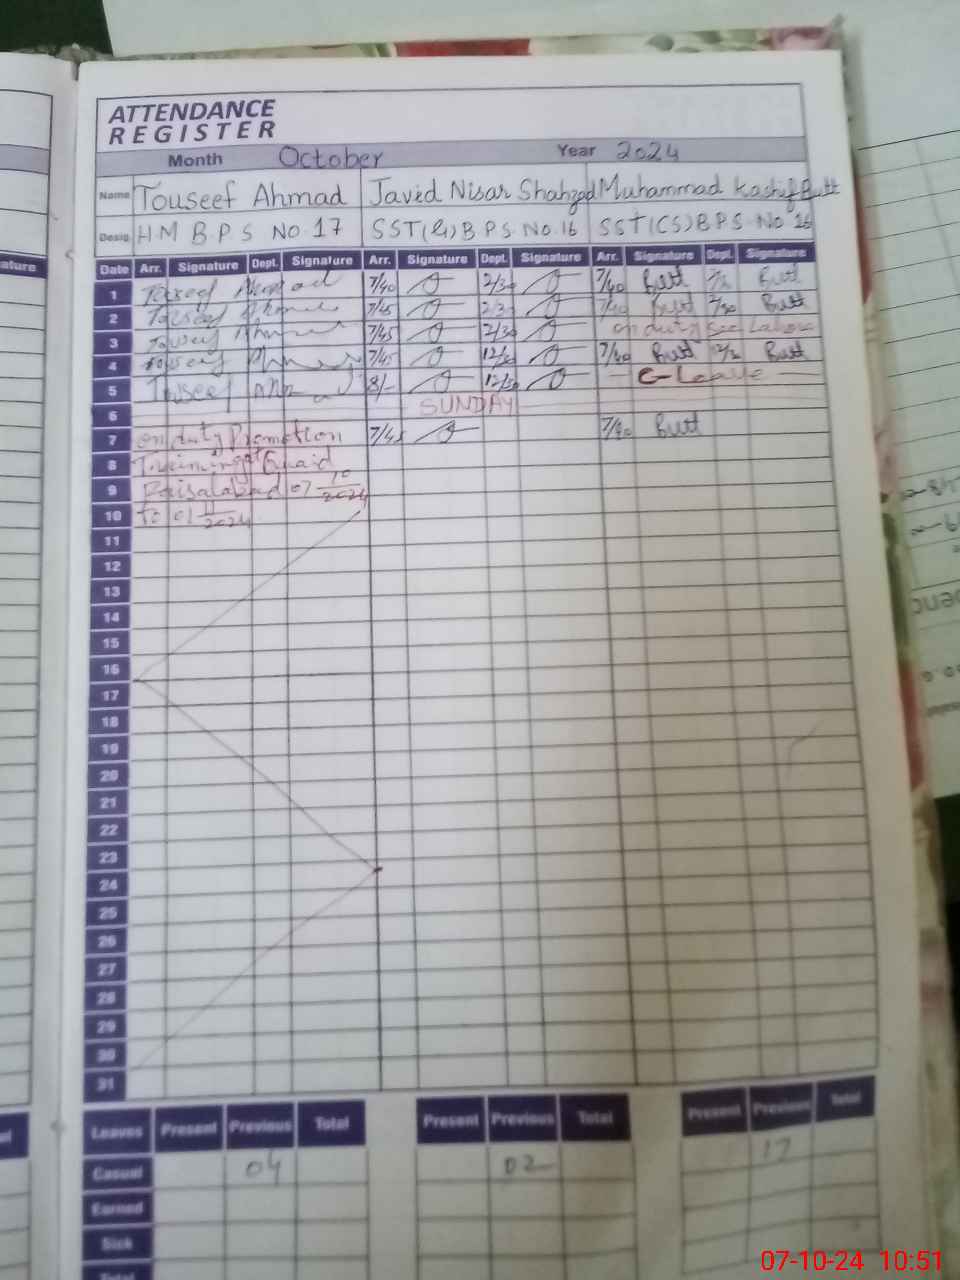 ATTENDANCE
REGISTER
Month October Year 2024
Name Touseef Ahmad Javid Nisar Shahzad Muhammad Kashif Butt
Desig. H M B P S NO. 17 SST( )B P S. NO. 16 SST(CS)B P S. NO 16
Date Arr. Signature Dept. Signature Arr. Signature Dept. Signature Arr. Signature Dept. Signature
1 Touseef Ahmad 7/40 2/30 7/40 Butt Butt
2 Touseef Ahmad 7/45 2/30 7/40 Butt 2/30 Butt
3 Touseef Ahmad 7/45 2/30 on duty Lahore
4 Touseef Ahmad 7/45 12/30 7/40 Butt Butt
5 Touseef 8/- 12/30 C-Leave
6 SUNDAY
7 on duty Promotion 7/45 7/40 Butt
8 Training at Quaid
9 Faisalabad 07 10/2024
10 to 01 11/2024
11
12
13
14
15
16
17
18
19
20
21
22
23
24
25
26
27
28
29
30
31
Leaves Present Previous Total Present Previous Total Present Previous Total
Casual 04 02 17
Earned
Sick
Total
ature
07-10-24 10:51